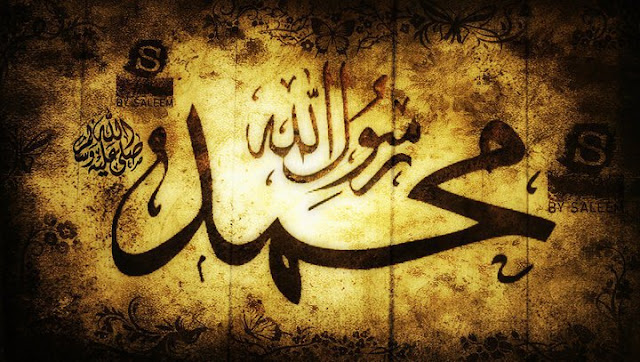 محمد
رسول الله
صلى الله عليه وسلم
S
BY SALEEM
S
BY SALEEM